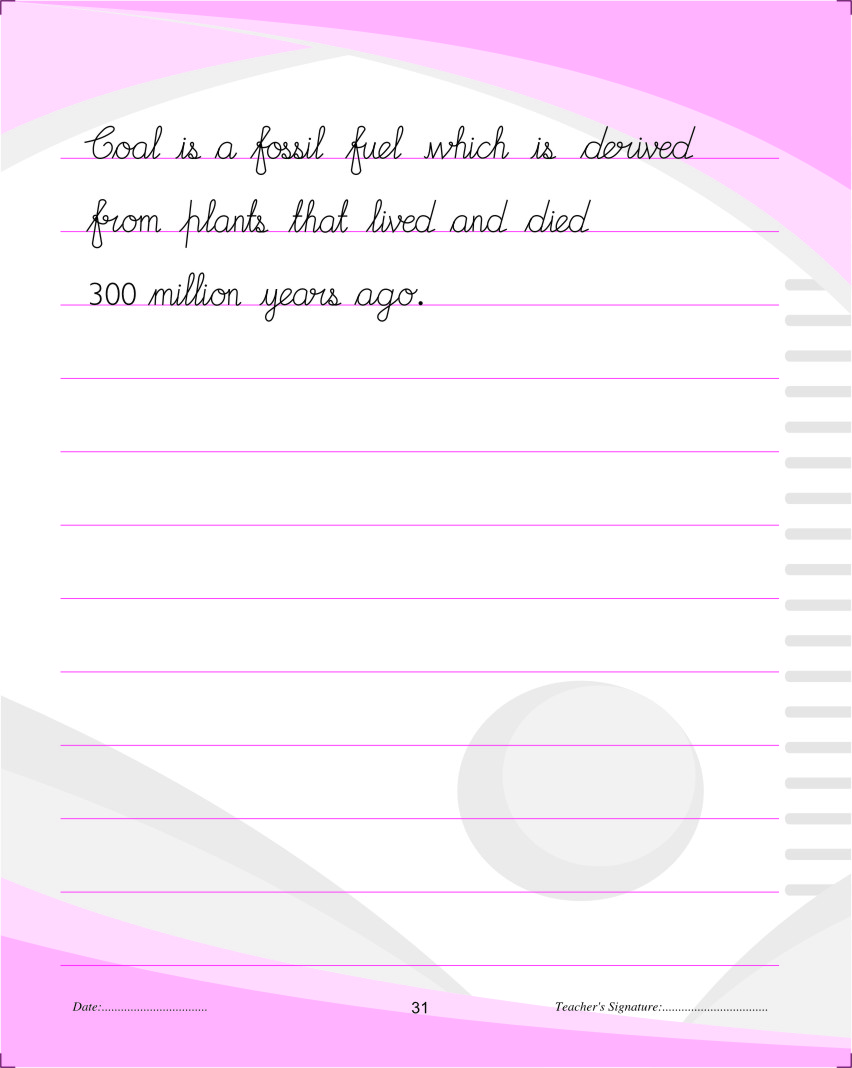 Coal is a fossil fuel which is derived
from plants that lived and died
300 million years ago.
Date:................................. 31 Teacher's Signature:.................................